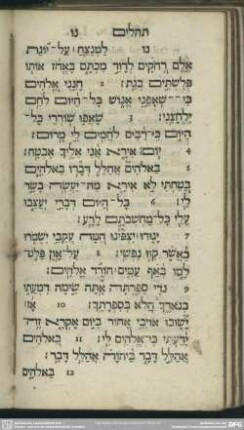 תהלים נו
נו למנצח על־יונת
אלם רחקים לדוד מכתם באחז אותו
פלשתים בגת: 2 חנני אלהים
כי־שאפני אנוש כל־היום לחם
ילחצני: 3 שאפו שוררי כל־
היום כי־רבים לחמים לי מרום:
4 יום אירא אני אליך אבטח:
5 באלהים אהלל דברו באלהים
בטחתי לא אירא מה־יעשה בשר
לי: 6 כל־היום דברי יעצבו
עלי כל־מחשבתם לרע:
7 יגורו יצפינו המה עקבי ישמרו
כאשר קוו נפשי: 8 על־און פלט־
למו באף עמים הורד אלהים:
9 נדי ספרתה אתה שימה דמעתי
בנאדך הלא בספרתך: 10 אז
ישובו אויבי אחור ביום אקרא זה־
ידעתי כי־אלהים לי: 11 באלהים
אהלל דבר ביהוה אהלל דבר:
12 באלהים